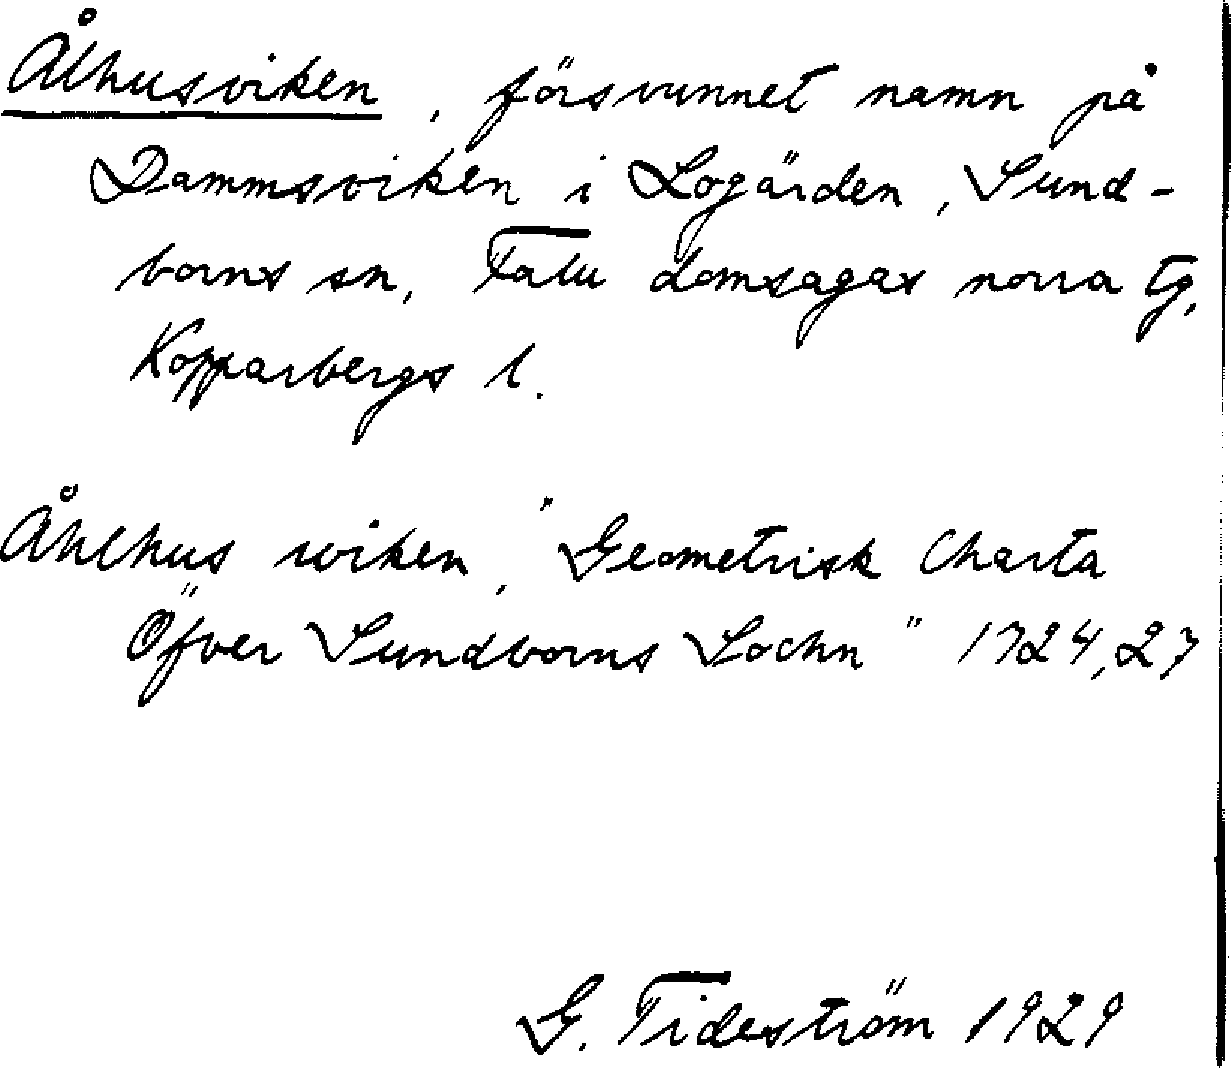 Ålhusviken, försvunnet namn på
Dammsviken i Logärden, Sund-
borns sn, Falu domsagas norra tg,
Kopparbergs l.
Åhlhus wiken, "Geometrisk Charta
Öfver Sundborns Sochn" 1724, 27
G. Tideström 1929